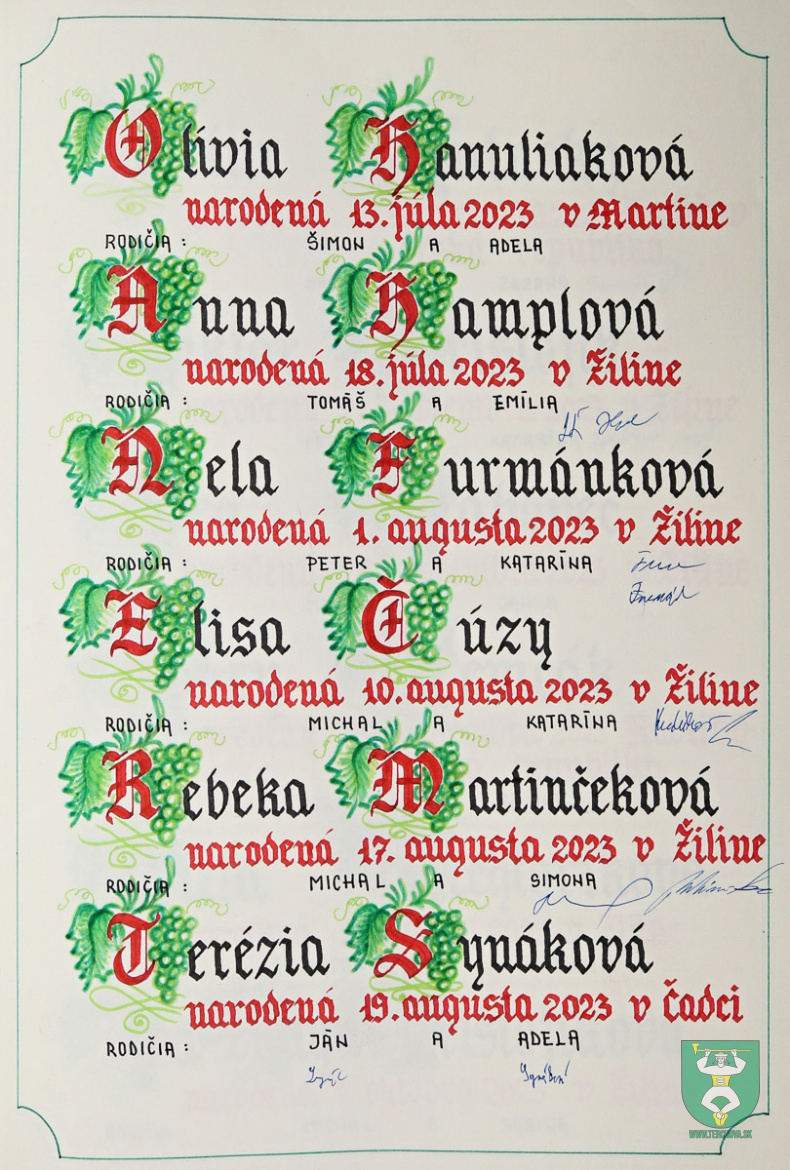 Olívia Hanuliaková
narodená 13. júla 2023 v Martine
RODIČIA: ŠIMON A ADELA
Anna Hamplová
narodená 18. júla 2023 v Žiline
RODIČIA: TOMÁŠ A EMÍLIA
Nela Furmánková
narodená 1. augusta 2023 v Žiline
RODIČIA: PETER A KATARÍNA
Elisa Čúzy
narodená 10. augusta 2023 v Žiline
RODIČIA: MICHAL A KATARÍNA
Rebeka Martinčeková
narodená 17. augusta 2023 v Žiline
RODIČIA: MICHAL A SIMONA
Terézia Synáková
narodená 19. augusta 2023 v Čadci
RODIČIA: JÁN A ADELA
WWW.TERCHOVA.SK